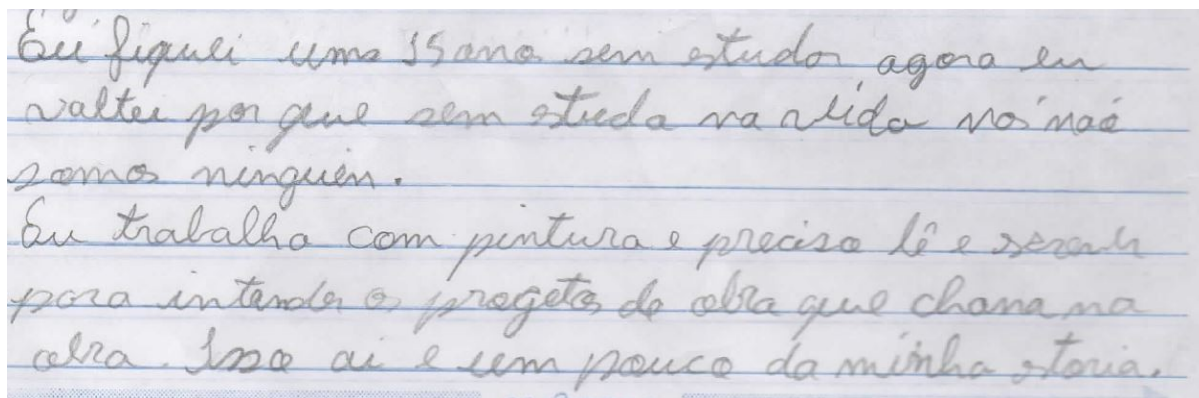 Eu fiquei uma 15 ano sem estudar agora eu
valtei por que sem estuda na vida nós não
somos ninguén.
Eu trabalho com pintura e preciso lê e
para intender os progetos da obra que chana na
obra. Isso ai e um pouco da minha storia.